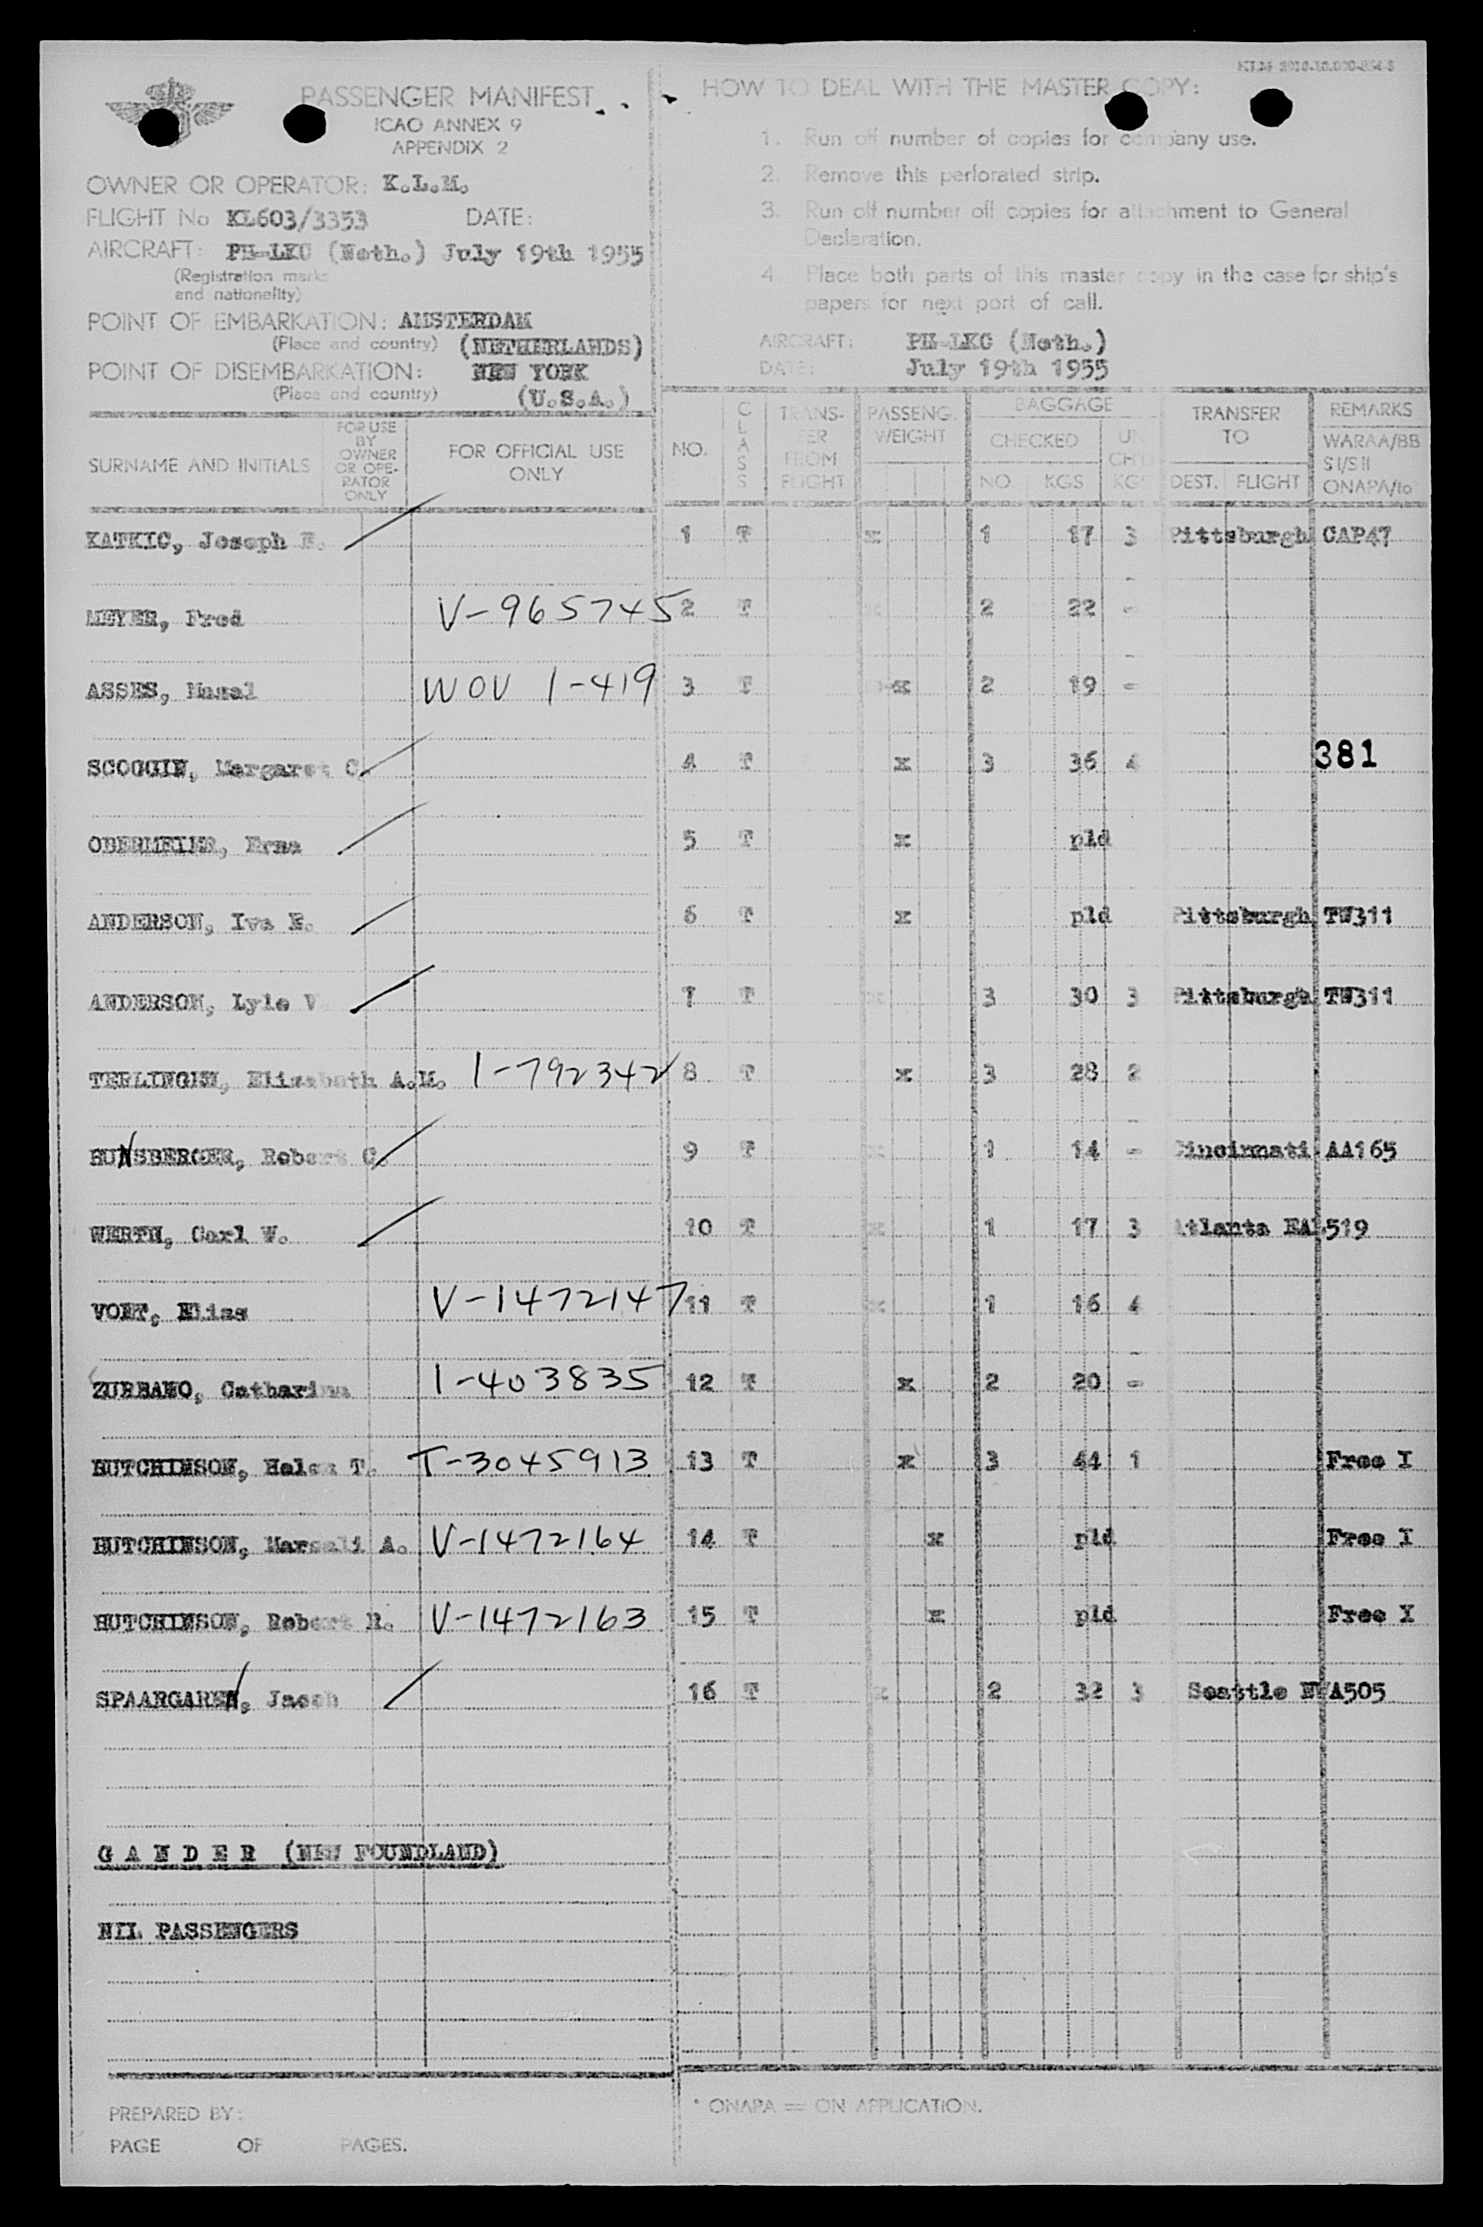 PASSENGER MANIFEST
ICAO ANNEX 9
APPENDIX 2
OWNER OR OPERATOR: K.L.M.
FLIGHT No KL603/3353 DATE:
AIRCRAFT: (Neth.) July 19th 1955
(Registration marks
and nationality)
POINT OF EMBARKATION: AMSTERDAM
(Place and country) (NETHERLANDS)
POINT OF DISEMBARKATION: NEW YORK
(Place and country) (U.S.A.)
HOW TO DEAL WITH THE MASTER COPY:
1. Run off number of copies for company use.
2. Remove this perforated strip.
3. Run off number off copies for attachment to General
Declaration.
4. Place both parts of this master copy in the case for ship's
papers for next port of call.
AIRCRAFT: PH-LKC (Neth.)
DATE: July 19th 1955
SURNAME AND INITIALS FOR USE BY OWNER OR OPE-RATOR ONLY FOR OFFICIAL USE ONLY NO. CLASS TRANS-FER FROM FLIGHT PASSENG. WEIGHT BAGGAGE CHECKED NO KGS UN CH'D KGS TRANSFER TO DEST. FLIGHT REMARKS WARAA/BB SI/SII ONAPA/to
KATKIC, Joseph F. 1 T x 1 17 3 Pittsburgh CAP47
MEYER, Fred V-965745 2 T x 2 22 -
ASSES, Masal WOV 1-419 3 T x 2 19 -
SCOGGIN, Margaret C. 4 T x 3 36 4 381
OBERMEIER, Erna 5 T x pld
ANDERSON, Iva E. 6 T x pld Pittsburgh TW311
ANDERSON, Lyle V 7 T x 3 30 3 Pittsburgh TW311
TERLINGEN, Elisabeth A.M. 1-792342 8 T x 3 28 2
HUNSBERGER, Robert C. 9 T x 1 14 - Cincinnati AA165
WERTH, Carl W. 10 T x 1 17 3 Atlanta EAL519
VOET, Elias V-1472147 11 T x 1 16 4
ZURBANO, Catharina 1-403835 12 T x 2 20 -
HUTCHINSON, Helen T. T-3045913 13 T x 3 44 1 Free I
HUTCHINSON, Marsali A. V-1472164 14 T x pld Free I
HUTCHINSON, Robert R. V-1472163 15 T x pld Free I
SPAARGAREN, Jacob 16 T x 2 32 3 Seattle NWA505
GANDER (NEW FOUNDLAND)
NIL PASSENGERS
PREPARED BY:
PAGE OF PAGES.
* ONAPA = ON APPLICATION.